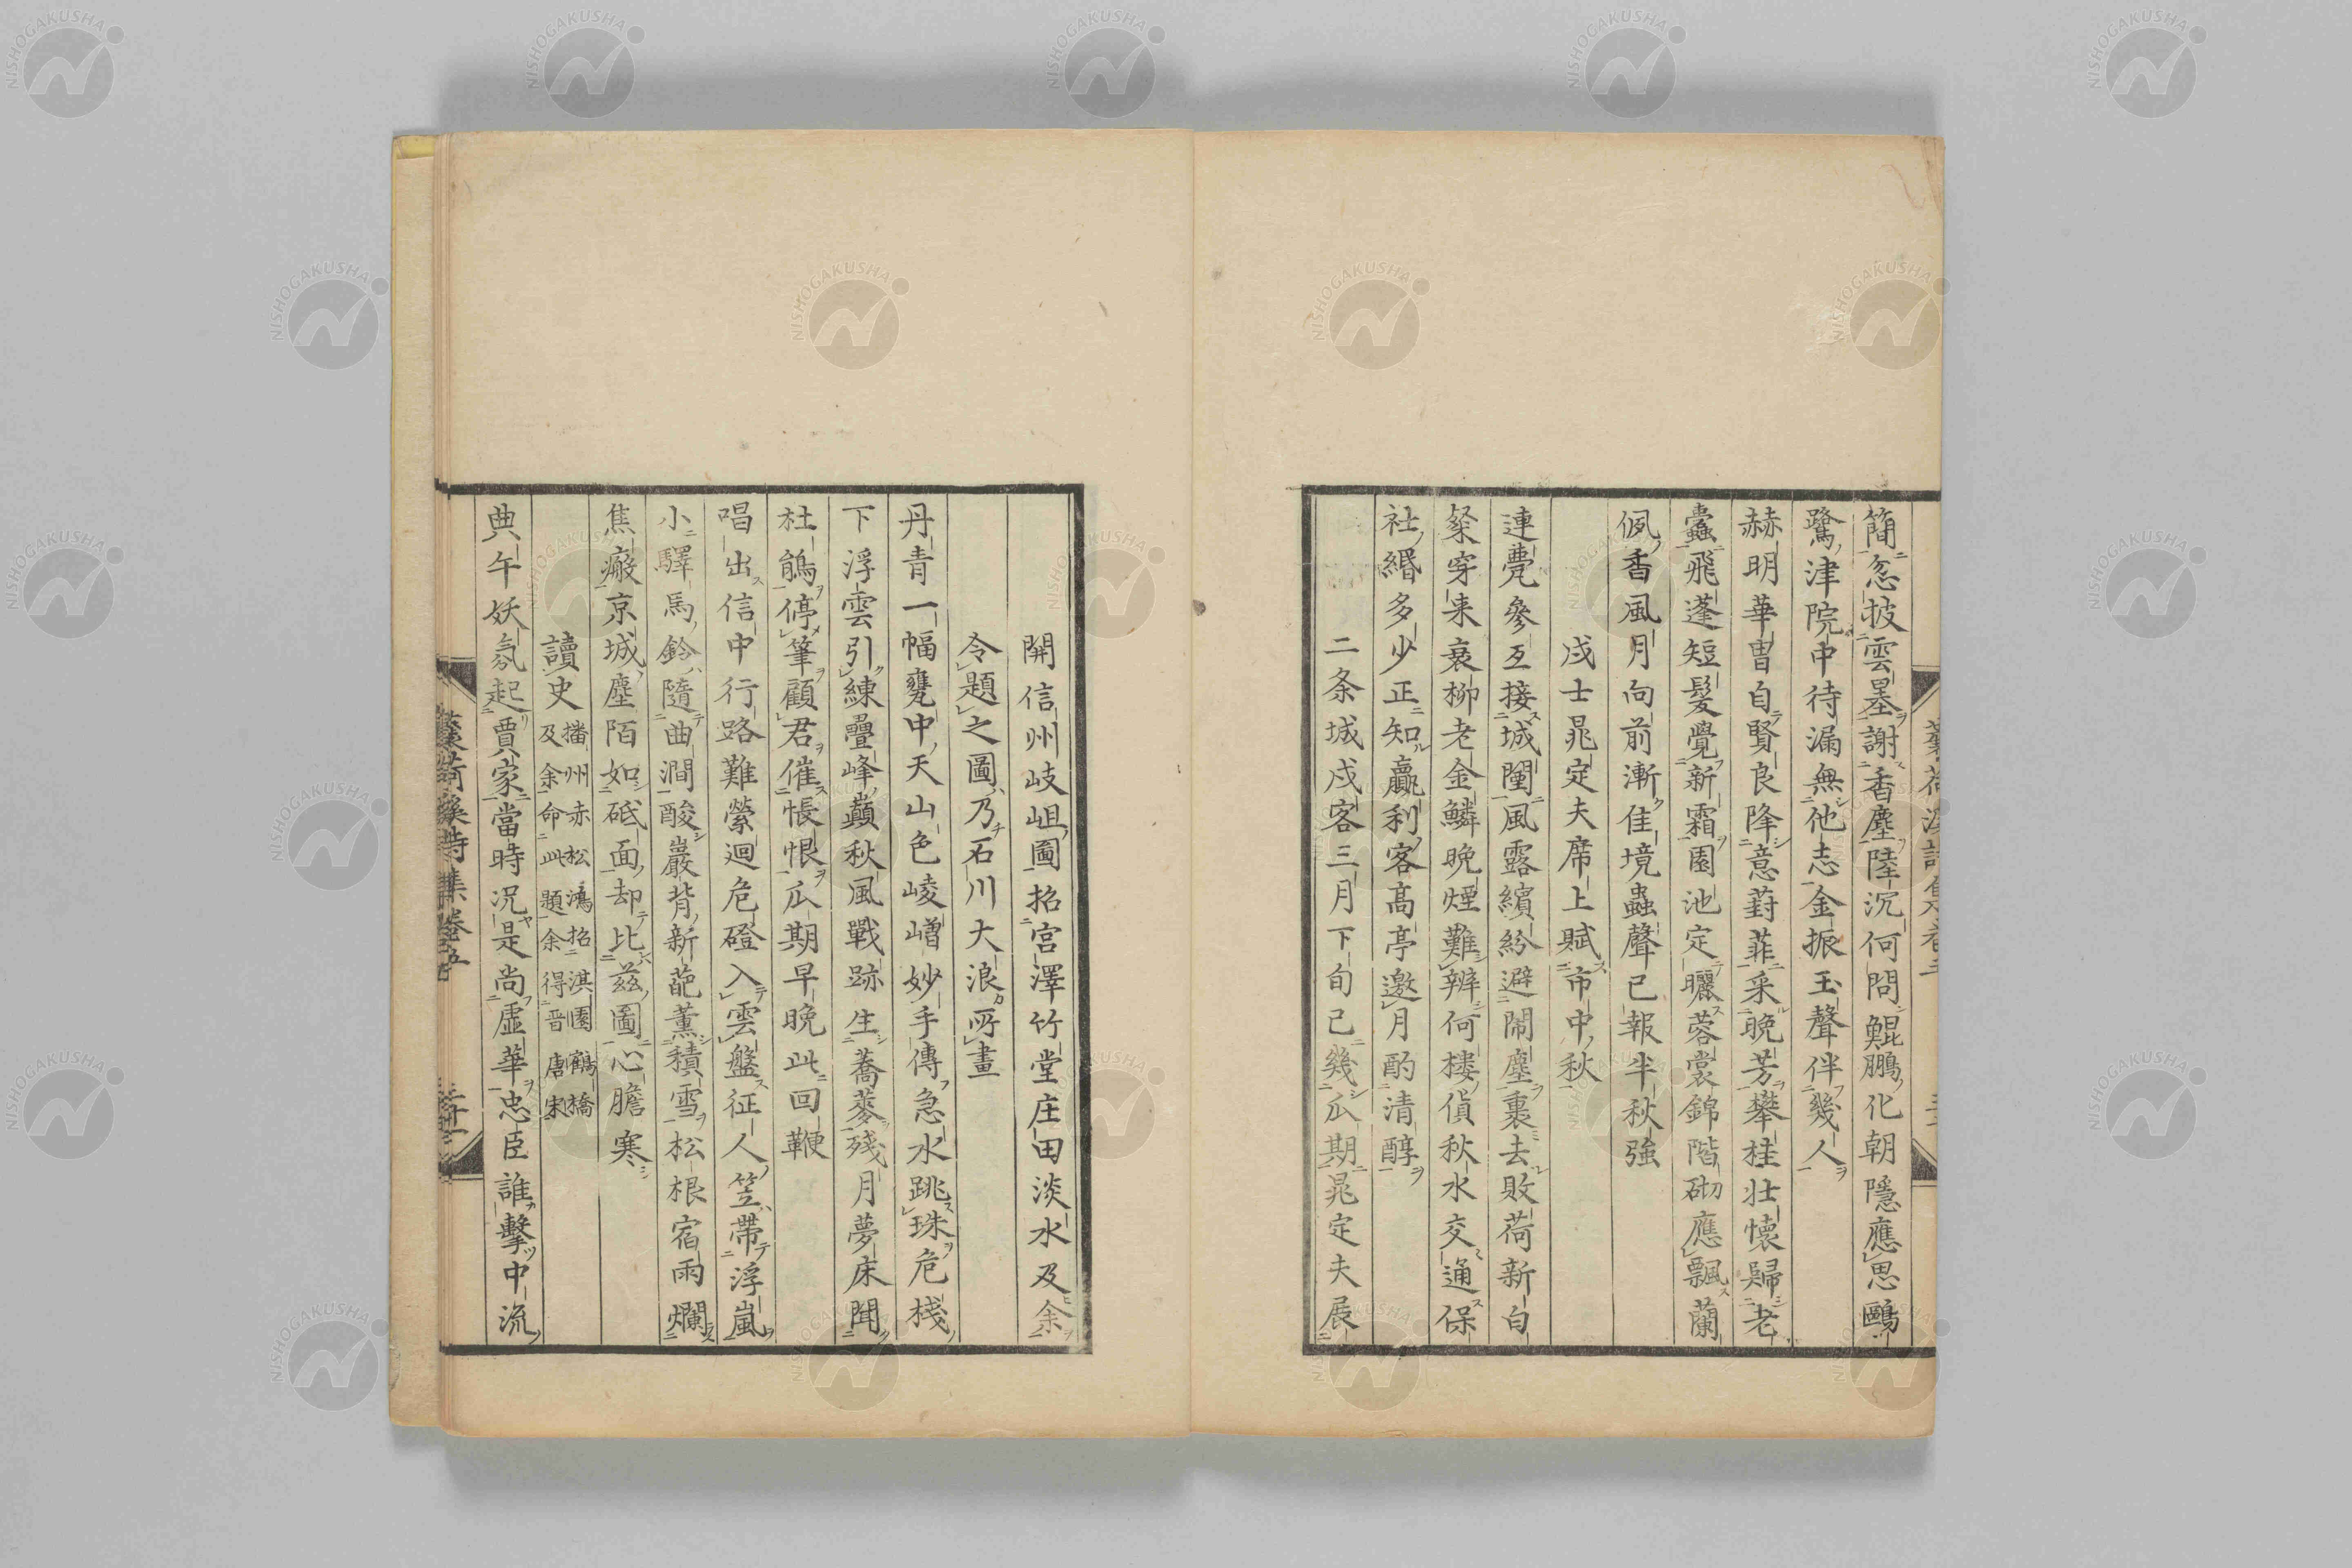 簡忽披雲墨謝香塵陸沉何問鯤鵬化朝隱應思鷗
鷺津院中待漏無他志金振玉聲伴幾人
赫明華冑自賢良降意葑菲采晚芳攀桂壯懷歸老
蠹飛蓬短髮覺新霜園池定曬蓉裳錦階砌應飄蘭
佩香風月向前漸佳境蟲聲已報半秋強
戍士晁定夫席上賦市中秋
連甍參互接城闉風露繽紛避鬧塵裏去敗荷新白
粲穿来衰柳老金鱗晚煙難辨何樓偵秋水交通保
社緡多少正知贏利客高亭邀月酌清醇
二条城戍客三月下旬已幾瓜期晁定夫展
開信州岐岨圖招宮澤竹堂庄田淡水及余
令題之圖乃石川大浪所畫
丹青一幅甕中天山色崚嶒妙手傳急水跳珠危棧
下浮雲引練疊峰巔秋風戰跡生蕎蔘殘月夢床聞
杜鵑停筆顧君催悵恨瓜期早晚此回鞭
唱出信中行路難縈迴危磴入雲盤征人笠帶浮嵐
小驛馬鈴隨曲澗酸巖背新葩薰積雪松根宿雨爛
焦瘢京城塵陌如砥面却比茲圖心膽寒
讀史 播州赤松鴻招淇園鶴橋
及余命此題余得晋唐宋
典午妖氛起賈家當時況是尚虛華忠臣誰擊中流
NISHOGAKUSHA